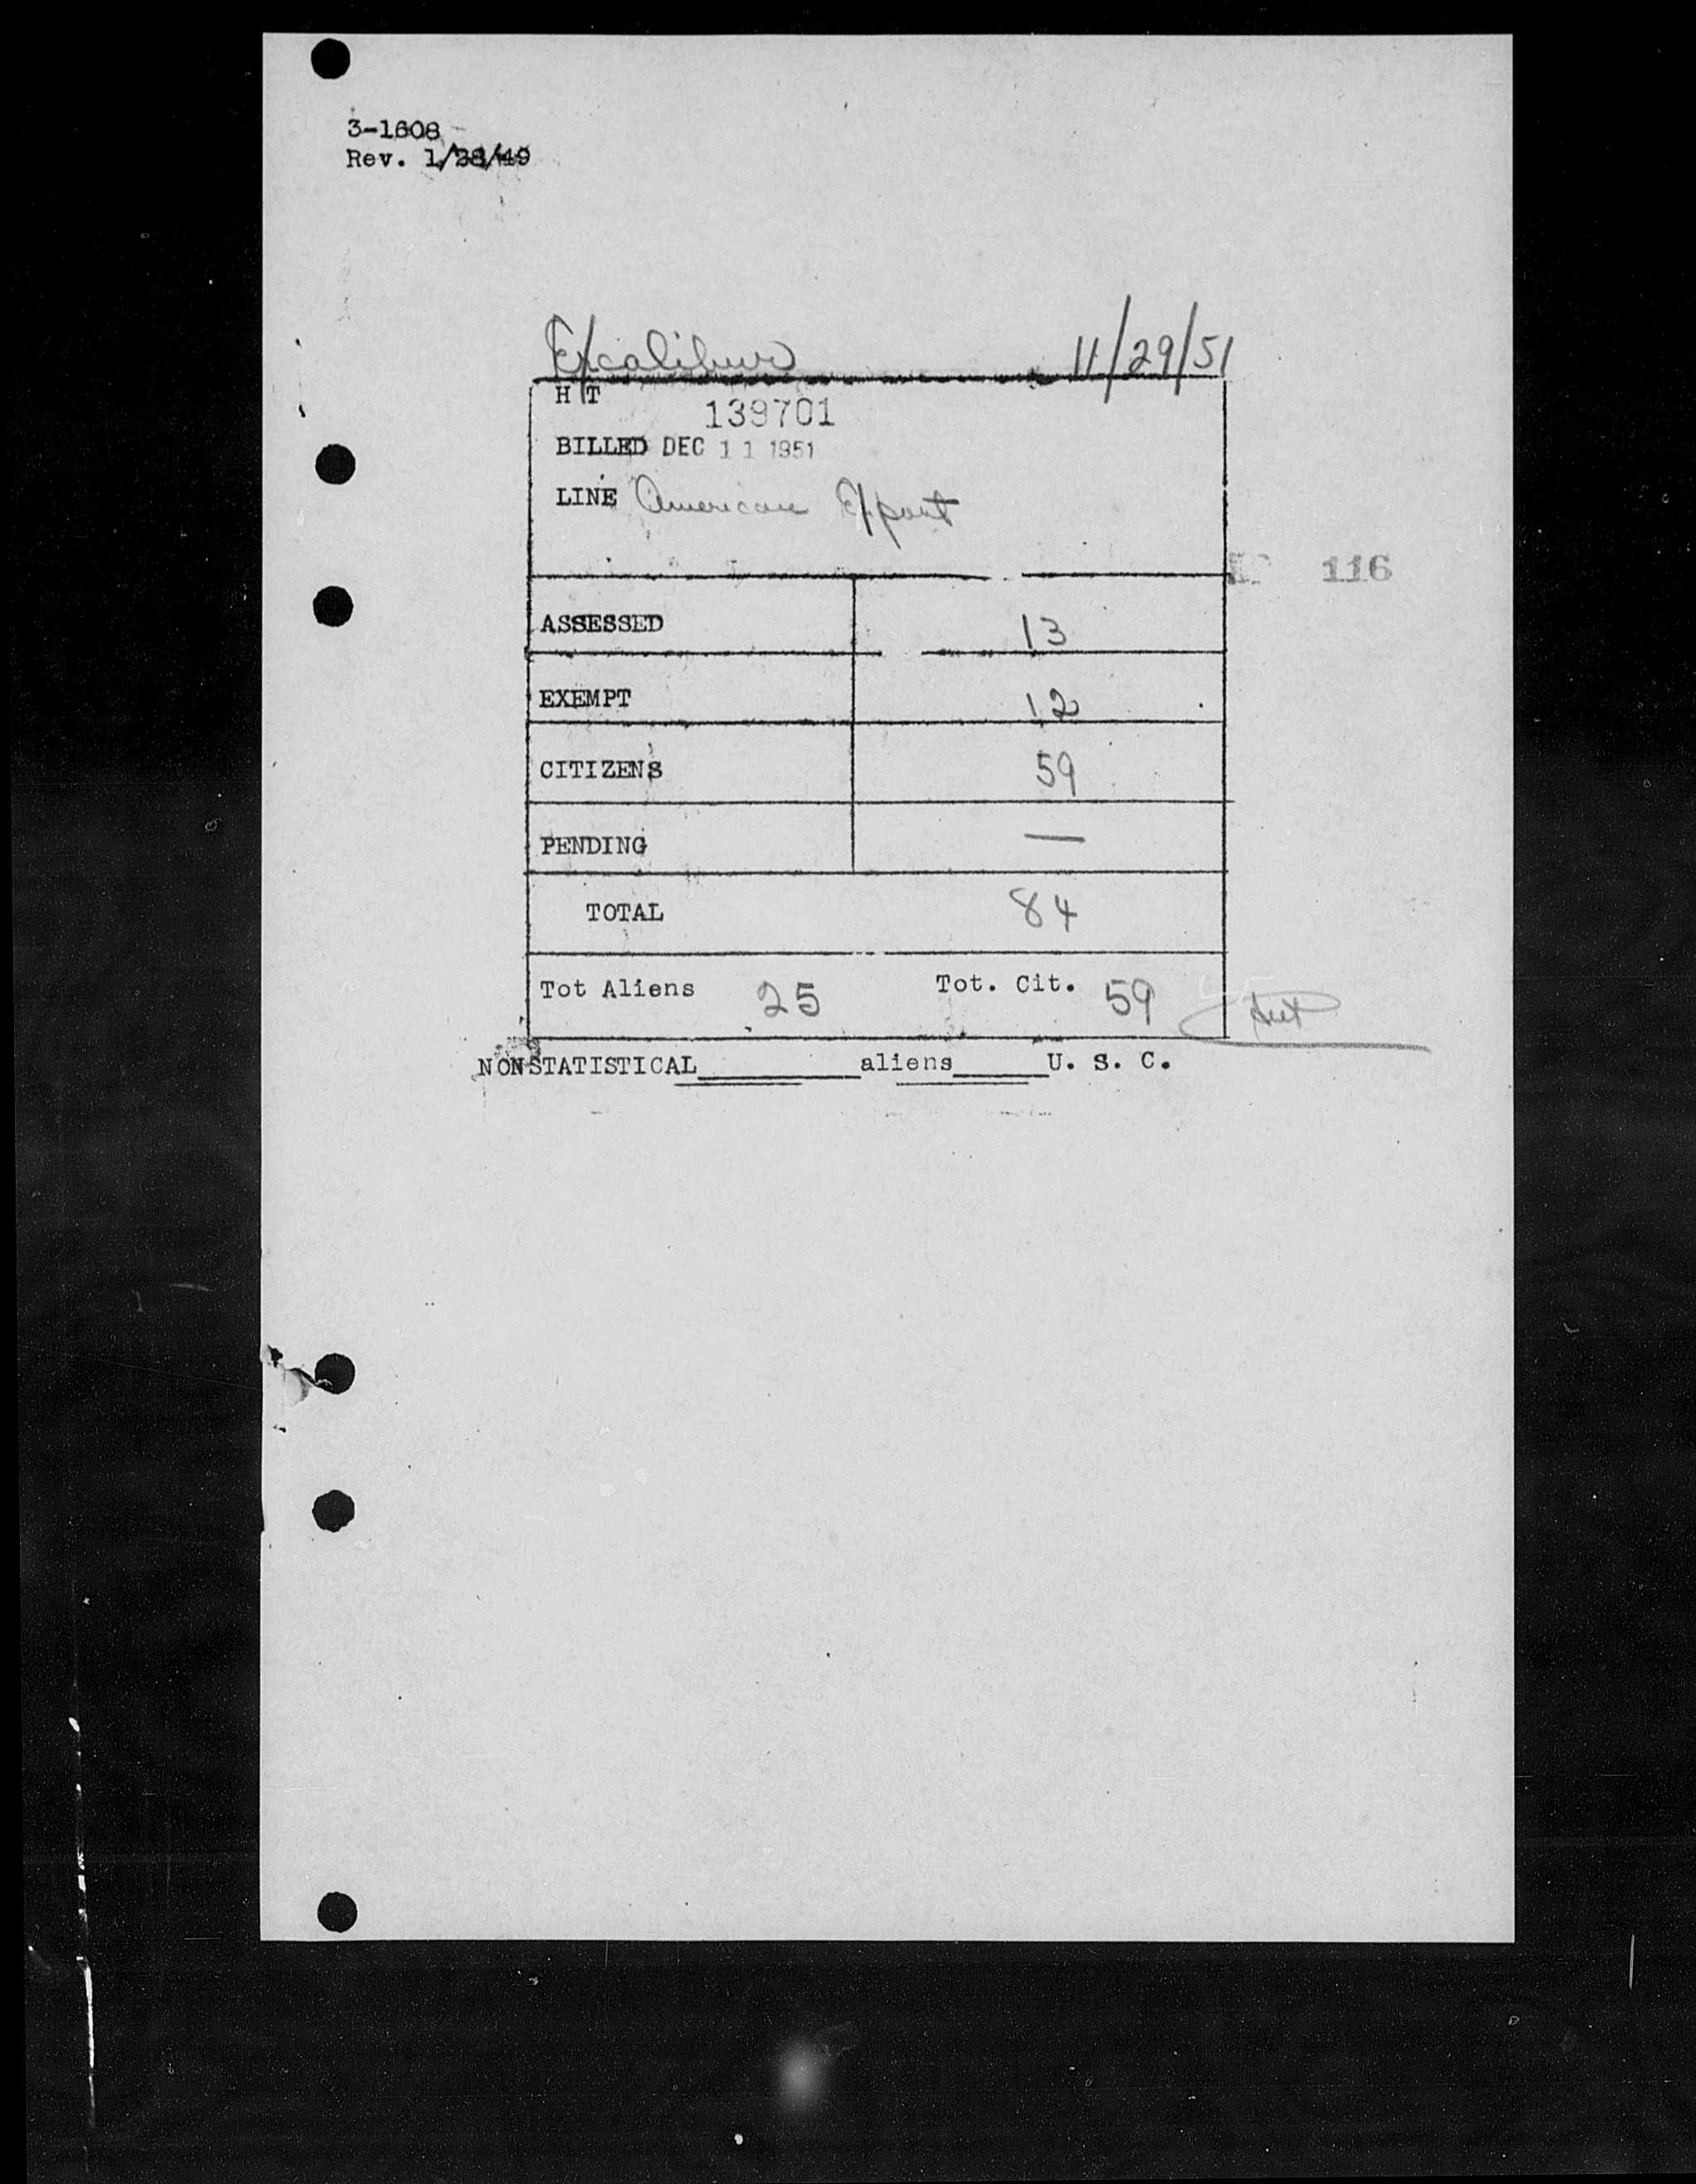 3-1608
Rev. 1/28/49
Excalibur 11/29/51
H T
139701
BILLED DEC 11 1951
LINE American Export
116
ASSESSED 13
EXEMPT 12
CITIZENS 59
PENDING —
TOTAL 84
Tot Aliens 25 Tot. Cit. 59
NONSTATISTICAL__________aliens______U. S. C.